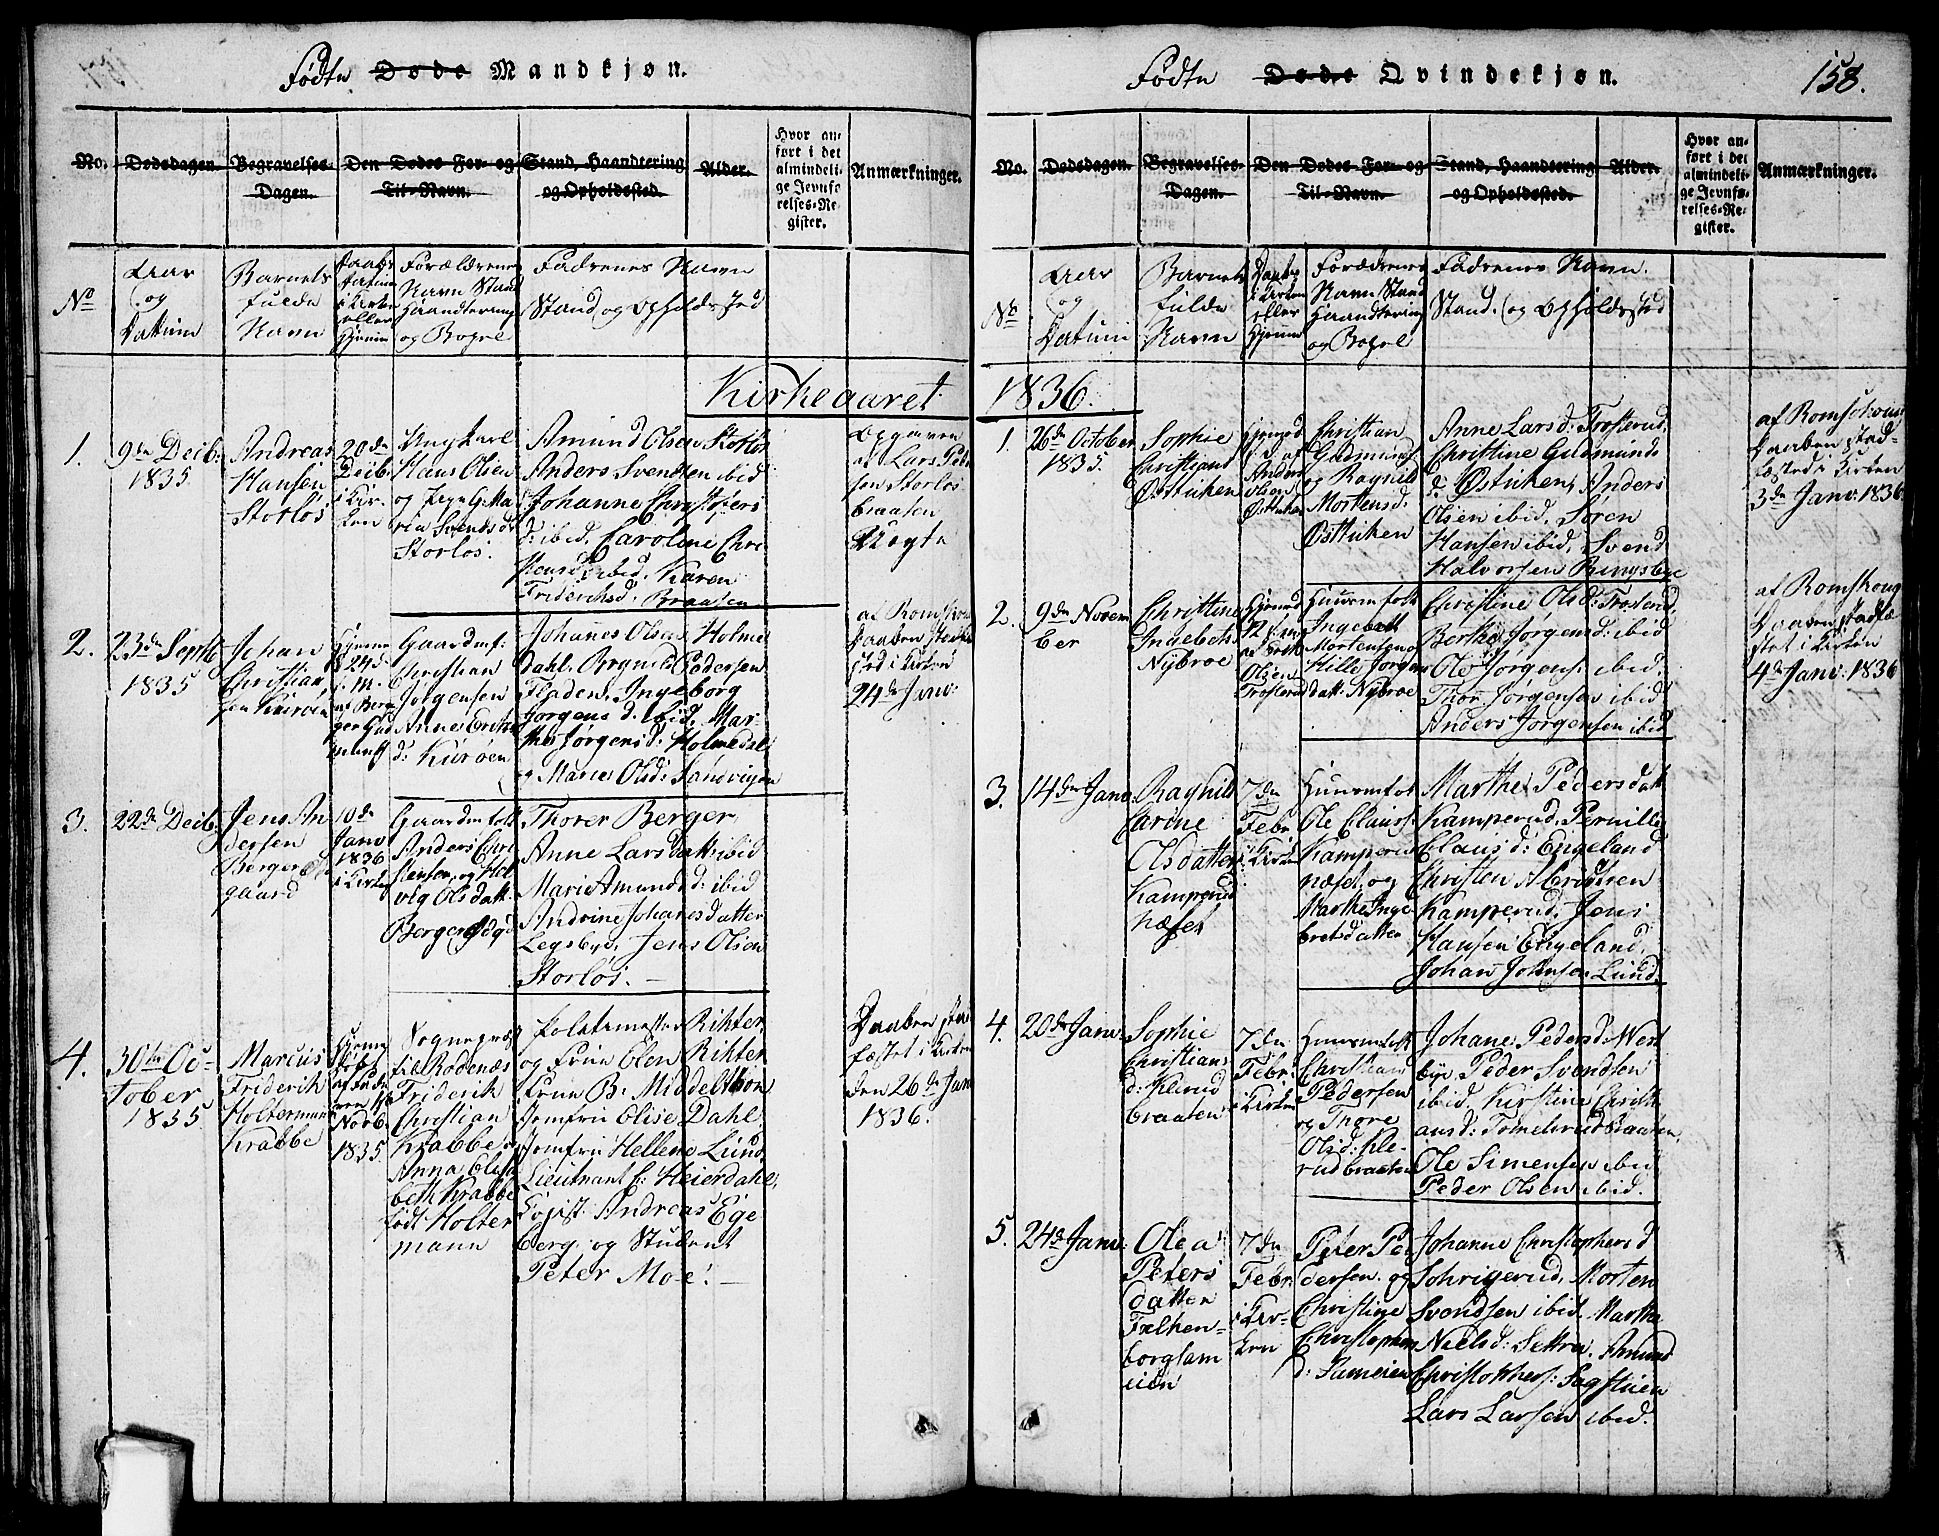 Fødte Døde Mandkjøn.
No.
Dødsdagen
Begravelses-
Dagen.
Den Dødes For- og
Til-Navn.
Stand, Haandtering
og Opholdssted.
Alder.
Hvor an-
ført i det
almindeli-
ge Jevnfø-
relses-Re-
gister.
Anmærkninger.
No
Aar
og
Datum
Barnets
fulde
Navn
Daabs
Datum
i Kirken
eller
Hjemme
Forældrenes
Navn Stand
Haandtering
og Bopel
Fadrenes Navn
Stand og Opholdssted
Kirkeaaret
1.
9de Decb.
1835
Andreas
Hansen
Storløs
20de
Decb.
i Kir-
ken
Ungkarl
Hans Olsen
og Pige
Storløs.
Amund Olsen Storløs
Anders Svendsen ibid
Johanne Christophers
d: ibid, Caroline Chri-
ibid. Karen
Friderichsd. Braaten
Opgaven
af Lars Pede
sen Storløs
braaten
2.
23de Septb
1835
Johan
Christian
sen Kurøen
Gaardmf:
Christian
Jørgensen
Anne
d: Kurøen
Johannes Olsen Holme
dahl, Brynild Pedersen
Fladen, Ingeborg
Jørgens d. ibid, Mar-
the Jørgensd: Holmedal
og Marie Olsd: Sandvigen
af Romskou
Daaben stadfæ
sted i Kirken
24de Janv:
3.
22de Decb.
Jens An
dersen
Berger
gaard
10de
Janv
1836
i Kirken
Gaardmfolk
Anders Chri
stensen, og Hol
vig Olsdatt.
Berger
Thorer Berger,
Anne Larsdatt: ibid
Marie Amunds d: ibid
Andrine Johanes datter
Legsbye, Jens Olsen
Storløs. —
4.
30te Oc-
tober
1835
Marcus
Friderik
Holtermann
Krabbe
Hjemme
døbt
Novb.
1835
Sognepræst
til Rødenæs
Friderik
Christian
Krabbe og
Anna Elisa
beth Krabbe
født Holter
mann
Politimester Rikter,
og Frue Elen Rikter
Frue B: Middelthon
Jomfru Elise Dahl,
Jomfru Hellene Lund
Lieutnant Heierdahl,
Copist: Andreas Ege
berg, og Student
Peter Moe! —
Daaben stad
fæstet i Kirken
den 26de Jan
1836.
Fødte Døde Qvindekjøn.
158.
No.
Dødsdagen.
Begravelses-
Dagen.
Den Dødes For- og
Til-Navn.
Stand, Haandtering
og Opholdssted.
Alder.
Hvor an-
ført i det
almindeli-
ge Jevnfø-
relses-Re-
gister.
Anmærkninger.
No
Aar
og
Datum
Barnets
fulde
Navn
Daabs
i Kirken
eller
Hjemme
Forældrenes
Navn Stand
Haandtering
og Bopel
Fadrenes Navn.
Stand. og Opholdssted
1836.
1.
26de October
1835.
Sophie
Christians
Østtuken
Hjemmed
af
Anders
Olsen
Østtuken
Christian
Gudmunds
og Ragnild
Mortensd.
Østtuken
Anne Larsd: Trosterud,
Christine Gudmunds
d: Østuken, Anders
Olsen ibid, Søren
Hansen ibid, Svend
Halvorsen Bingsbye
af Romskoug
Daaben stad-
fæsted i Kirken
3de Janv: 1836
2.
9de Novem
ber
Christine
Ingebrets
Nybroe
Olsen
Trosterud
Huusmfolk
Ingebrett
Mortensen og
Hille Jørgens
datt: Nybroe
Christine Olsd: Trosterud,
Berthe Jørgensd: ibid
Ole Jørgens: ibid
Thor Jørgensen ibid
Anders Jørgensen ibid
af Romskoug
Daaben stadfæ
stet i Kirken
4de Janv: 1836
3.
14de Janv
Raghild
Carine
Olsdatter
Kamperud
næset
7de
Febr:
i Kirken
Huusmfolk
Ole Clauss.
Kamperud
næset, og
Marthe Inge
bretsdatter
Marthe Pedersdatt
Kamperud, Pernille
Claus d: Engeland
Christen
Kamperud, Jens
Hansen Engeland,
Johan Johnsen Lund.
4.
20de Janv.
Sophie
Christians
d: Klerud
braaten
7de
Febr:
i Kirken
Huusmfolk
Christian
Pedersen
og Thore
Olsd: Kle-
rudbraaten
Johane Pedersd West
bye, Peder Svendsen
ibid. Kirstine Christi
ans d: Tomelrudbraaten,
Ole Simensen ibid
Peder Olsen ibid.
5.
24de Janv.
Olea
Peters
datter
Falken-
borglam
eien
7de
Febr.
i Kir-
ken
Peter Pe
dersen og
Christine
Christophers
d:
Johanne Christophersd
Sohrigerud, Morten
Svendsen ibid. Marthe
Nielsd: Settra. Amund
Christophers: Sagstuen
Lars Larsen ibid.